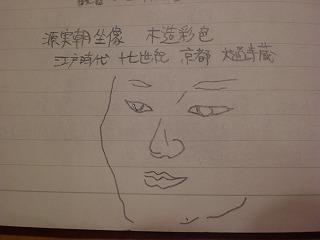 源実朝坐像 木造彩色
江戸時代 十七世紀 京都 大通寺蔵